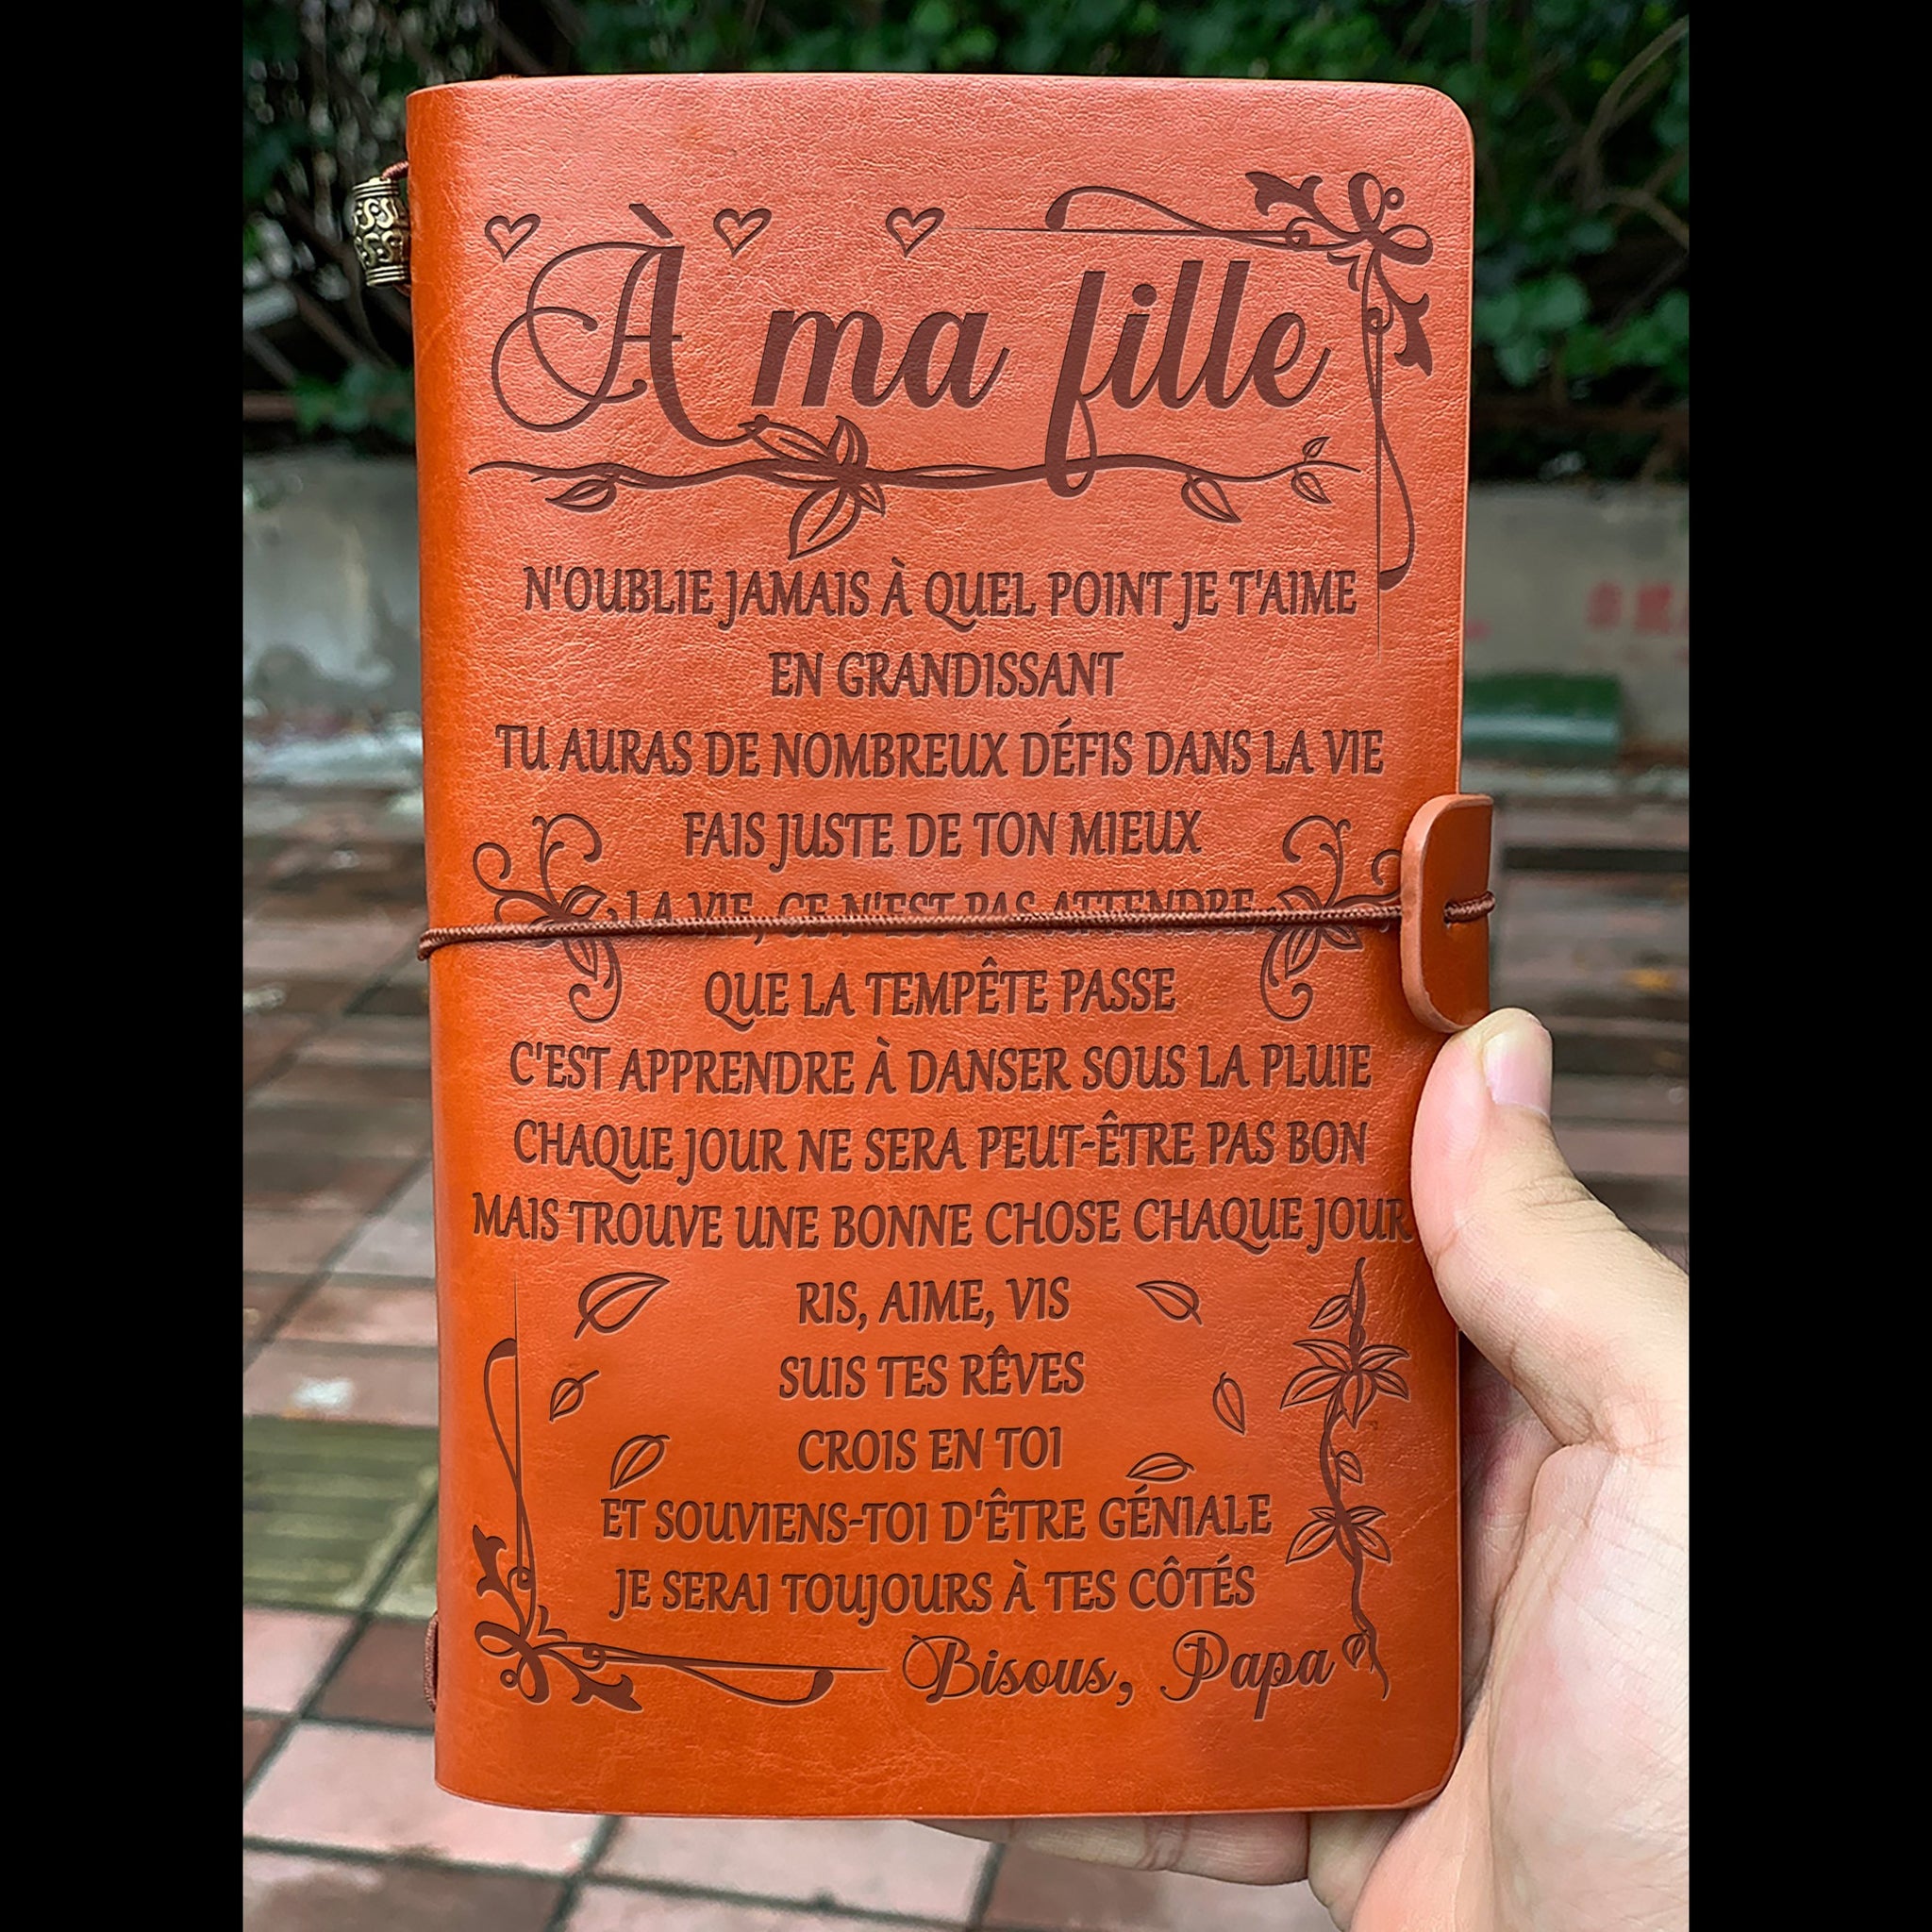 À ma fille
N'OUBLIE JAMAIS À QUEL POINT JE T'AIME
EN GRANDISSANT
TU AURAS DE NOMBREUX DÉFIS DANS LA VIE
FAIS JUSTE DE TON MIEUX
LA VIE, CE N'EST PAS ATTENDRE
QUE LA TEMPÊTE PASSE
C'EST APPRENDRE À DANSER SOUS LA PLUIE
CHAQUE JOUR NE SERA PEUT-ÊTRE PAS BON
MAIS TROUVE UNE BONNE CHOSE CHAQUE JOUR
RIS, AIME, VIS
SUIS TES RÊVES
CROIS EN TOI
ET SOUVIENS-TOI D'ÊTRE GÉNIALE
JE SERAI TOUJOURS À TES CÔTÉS
Bisous, Papa